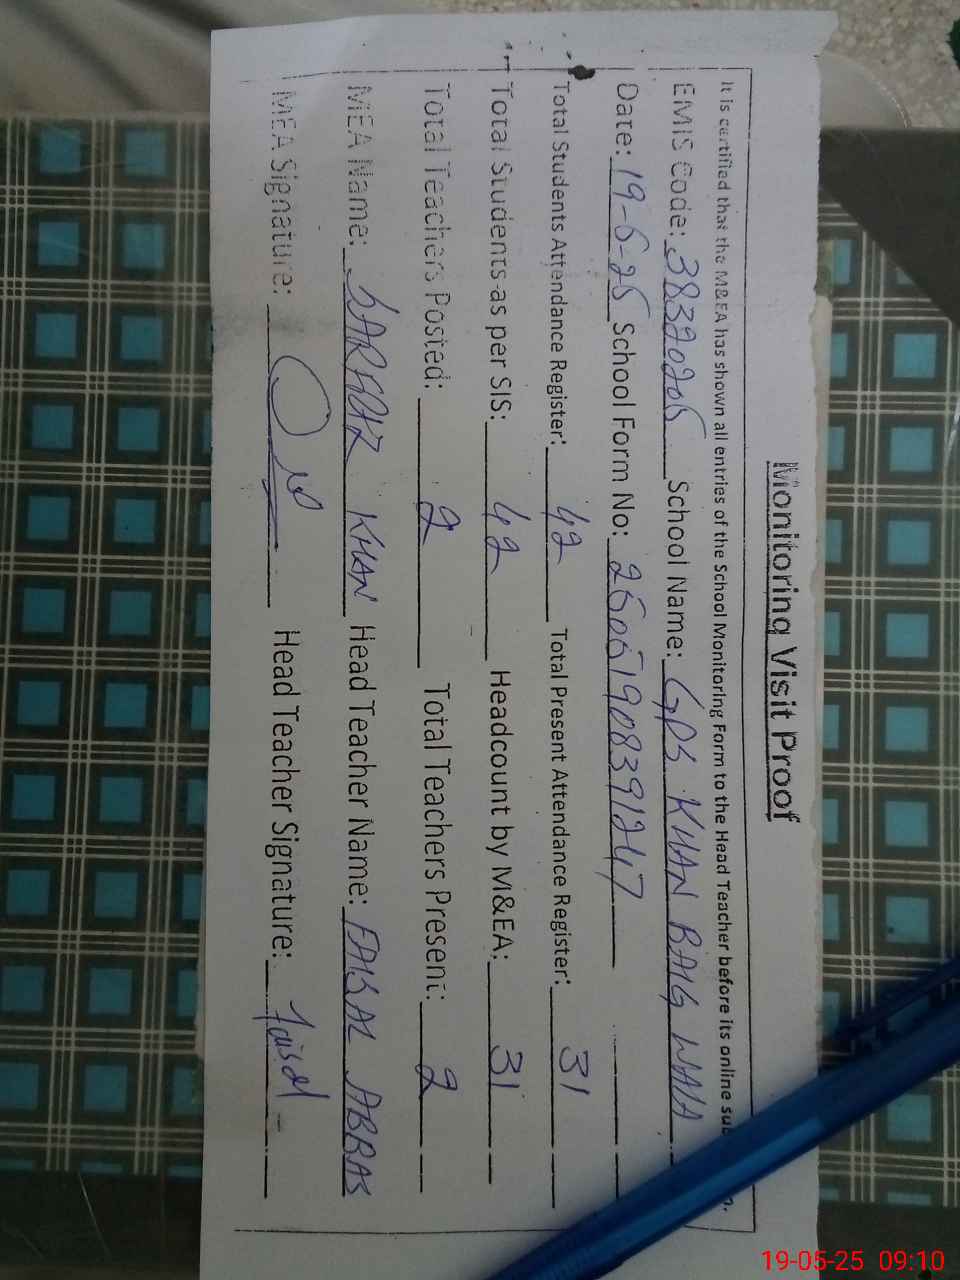 Monitoring Visit Proof
It is certified that the M&EA has shown all entries of the School Monitoring Form to the Head Teacher before its online
EMIS Code: 38320205 School Name: GPS KHAN BAIG WALA
Date: 19-5-25 School Form No: 25051908391247
Total Students Attendance Register: 42 Total Present Attendance Register: 31
Total Students as per SIS: 42 Headcount by M&EA: 31
Total Teachers Posted: 2 Total Teachers Present: 2
MEA Name: SARFRAZ KHAN Head Teacher Name: FAISAL ABBAS
MEA Signature: Head Teacher Signature: Faisal
19-05-25 09:10